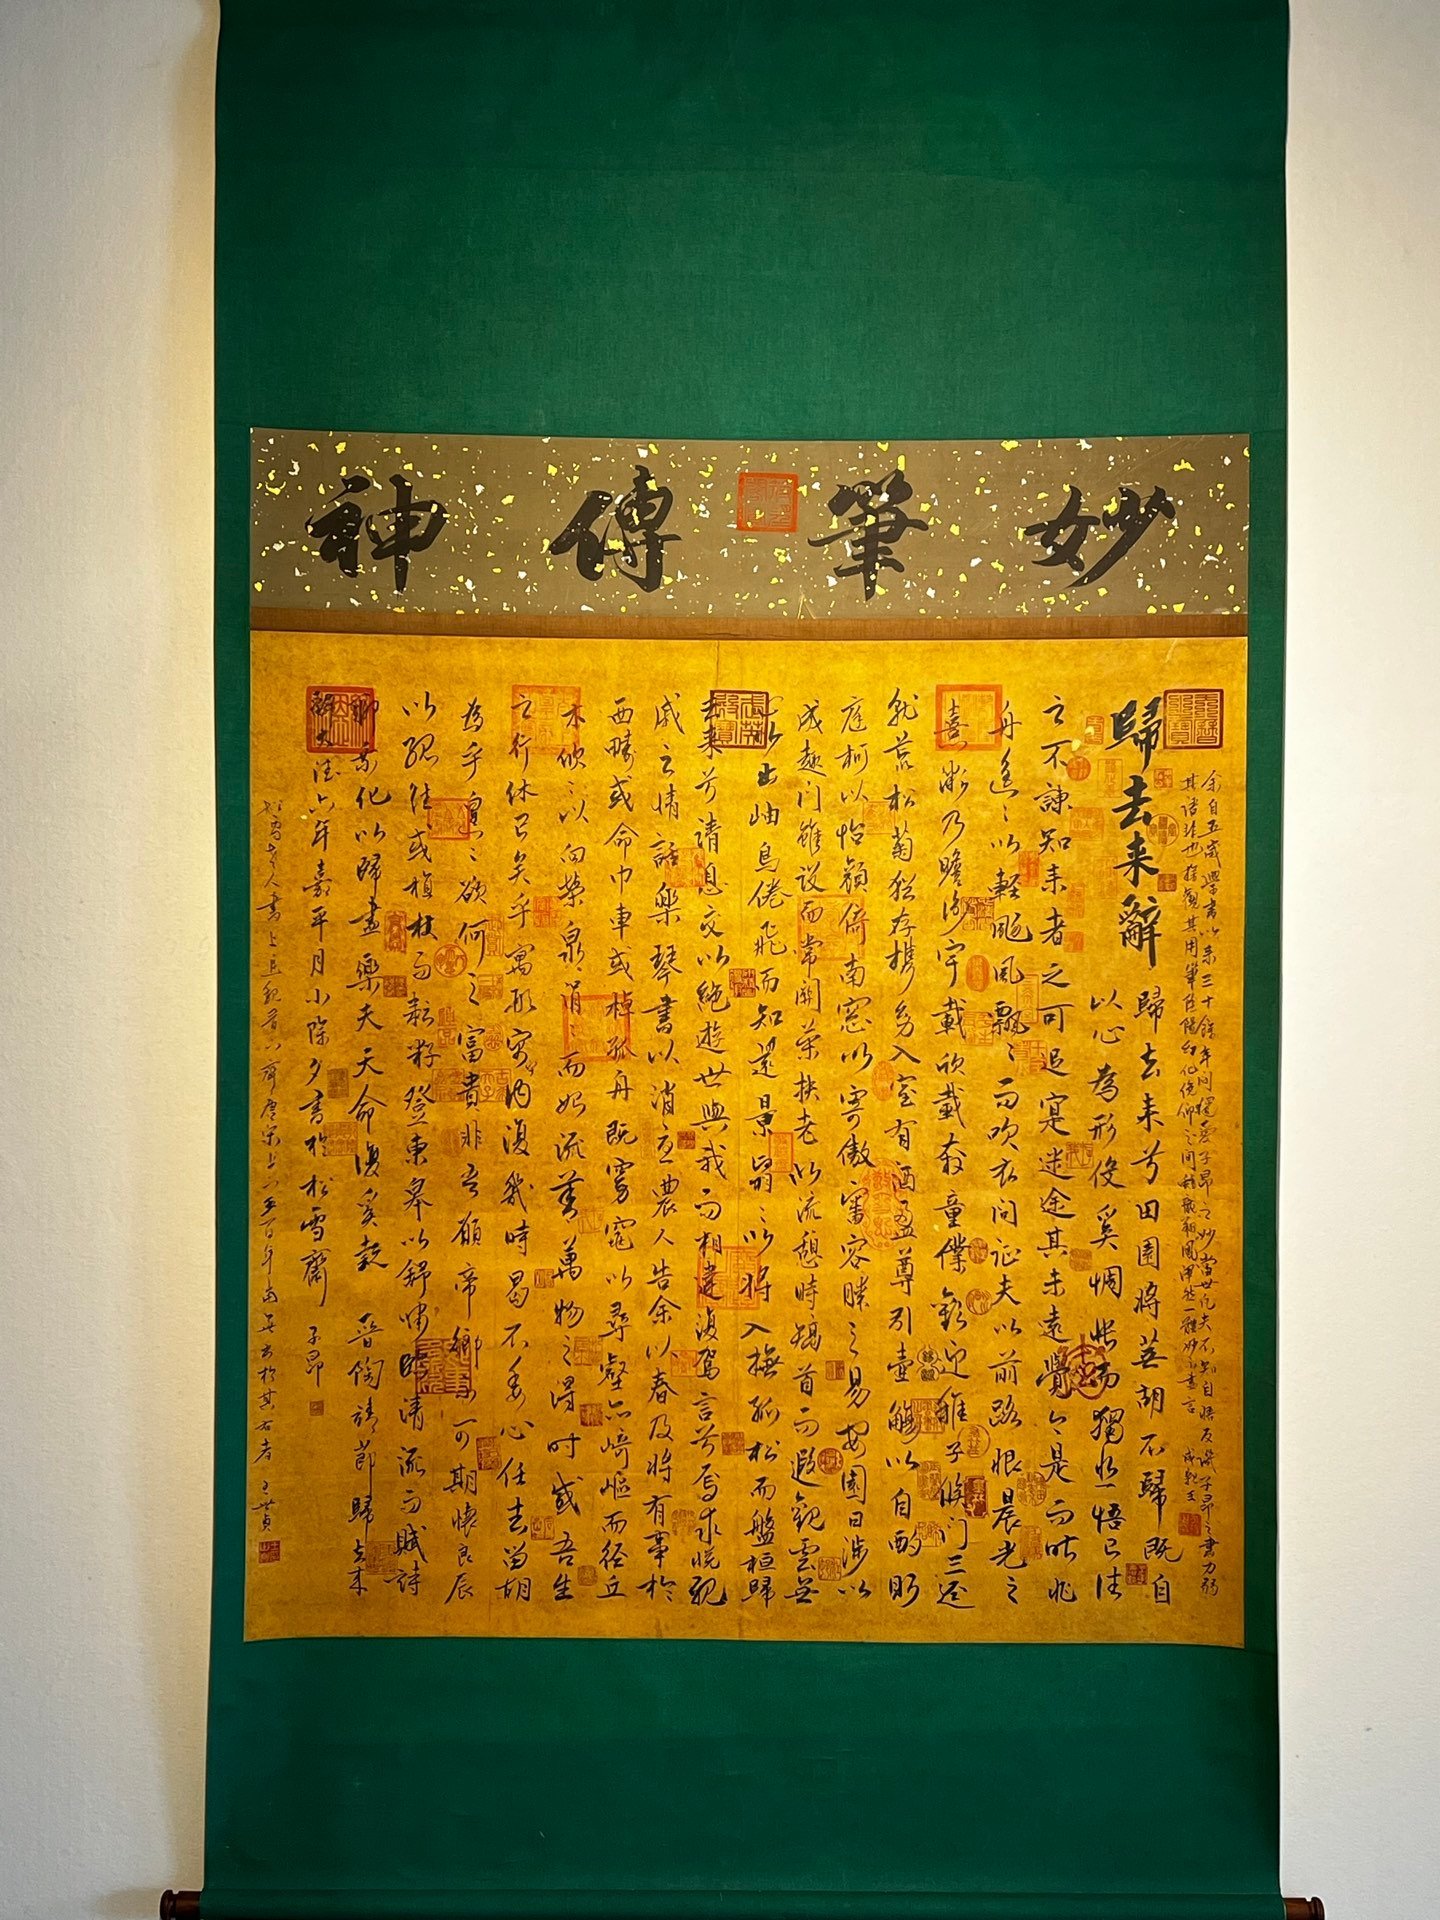 妙筆傳神
余自五歲學書以来三十餘年间獨愛子昂之妙當世凡夫不知自悟反譏子昂之書力弱
其語非也 觀其用筆陰陽幻化俯仰之间 成親王
歸去来辭 歸去来兮田園將蕪胡不歸既自
以心為形役奚惆悵而獨悲悟已往
之不諫知来者之可追寔迷途其未遠覺今是而昨非
舟遙〻以輕颺風飄〻而吹衣问征夫以前路恨晨光之
熹微乃瞻衡宇載欣載奔童僕歡迎稚子候门三逕
就荒松菊猶存携幼入室有酒盈尊引壺觴以自酌眄
庭柯以怡顏倚南窓以寄傲審容膝之易安園日涉以
成趣门雖设而常關策扶老以流憩時矯首而遐觀雲無
心以出岫鳥倦飛而知還景翳〻以將入撫孤松而盤桓歸
去来兮請息交以絶遊世與我而相違復駕言兮焉求悅親
戚之情話樂琴書以消憂農人告余以春及將有事於
西疇或命巾車或棹孤舟既窈窕以尋壑亦崎嶇而徑丘
木欣〻以向榮泉涓〻而始流善萬物之得時感吾生
之行休已矣乎寓形宇内復幾時曷不委心任去留胡
為乎皇〻欲何之富貴非吾願帝鄉不可期懷良辰
以孤往或植杖而耘耔登東皋以舒嘯臨清流而賦詩
聊乘化以歸盡樂夫天命復奚疑 晉陶靖節歸去来
辭大德六年嘉平月小除夕書於松雪齋 子昂
老人書上追 唐宋上下五百年 出於其右者 王世貞